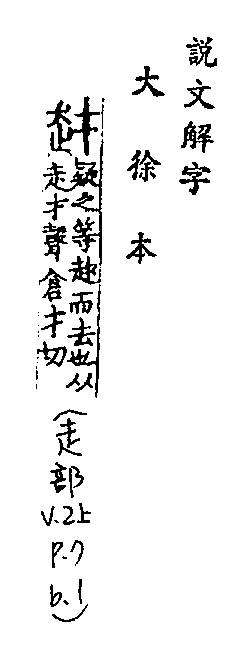 説文解字
大徐本
疑之等而去也从
走才聲倉才切
(走部
V.2上
P.7
b.1)